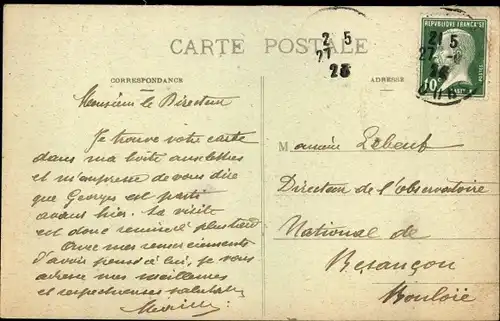 CARTE POSTALE
CORRESPONDANCE
Monsieur le Directeur
Je trouve votre carte
dans ma boîte aux lettres
et m'empresse de vous dire
que Georges est parti
avant hier. Sa visite
est donc remise à plus tard
Avec mes remerciements
d'avoir pensé à lui, je vous
adresse mes meilleures
et respectueuses salutat
ADRESSE
Monsieur Lebeuf
Directeur de l'Observatoire
National de
Besançon
Bouloie
2 5
27
26
REPUBLIQUE FRANÇAISE
10
POSTES
2 5
27